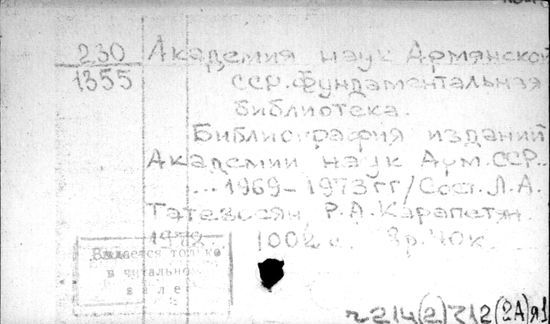 230
1355
Академия наук Армянской
ССР. Фундаментальная
библиотека.
Библиография изданий
Академии наук Арм.ССР.
... 1969-1973гг/Сост. Л.А.
Татевосян, Р.А. Карапетян.
1979. 1002 с. 3р.40к.
Выдается только
в читальном
зале